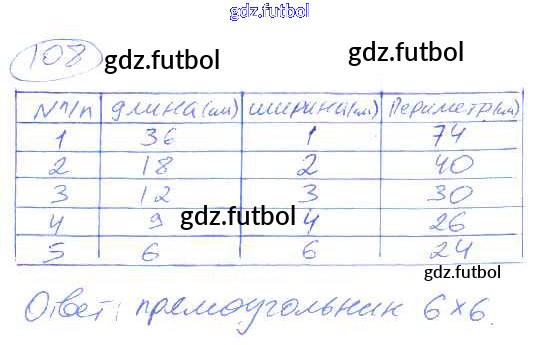 gdz.futbol
108 gdz.futbol gdz.futbol
N п/п длина(см) ширина(см) Периметр(см)
1 36 1 74
2 18 2 40
3 12 3 30
4 9 gdz.futbol 4 26
5 6 6 24
gdz.futbol
Ответ: прямоугольник 6×6.